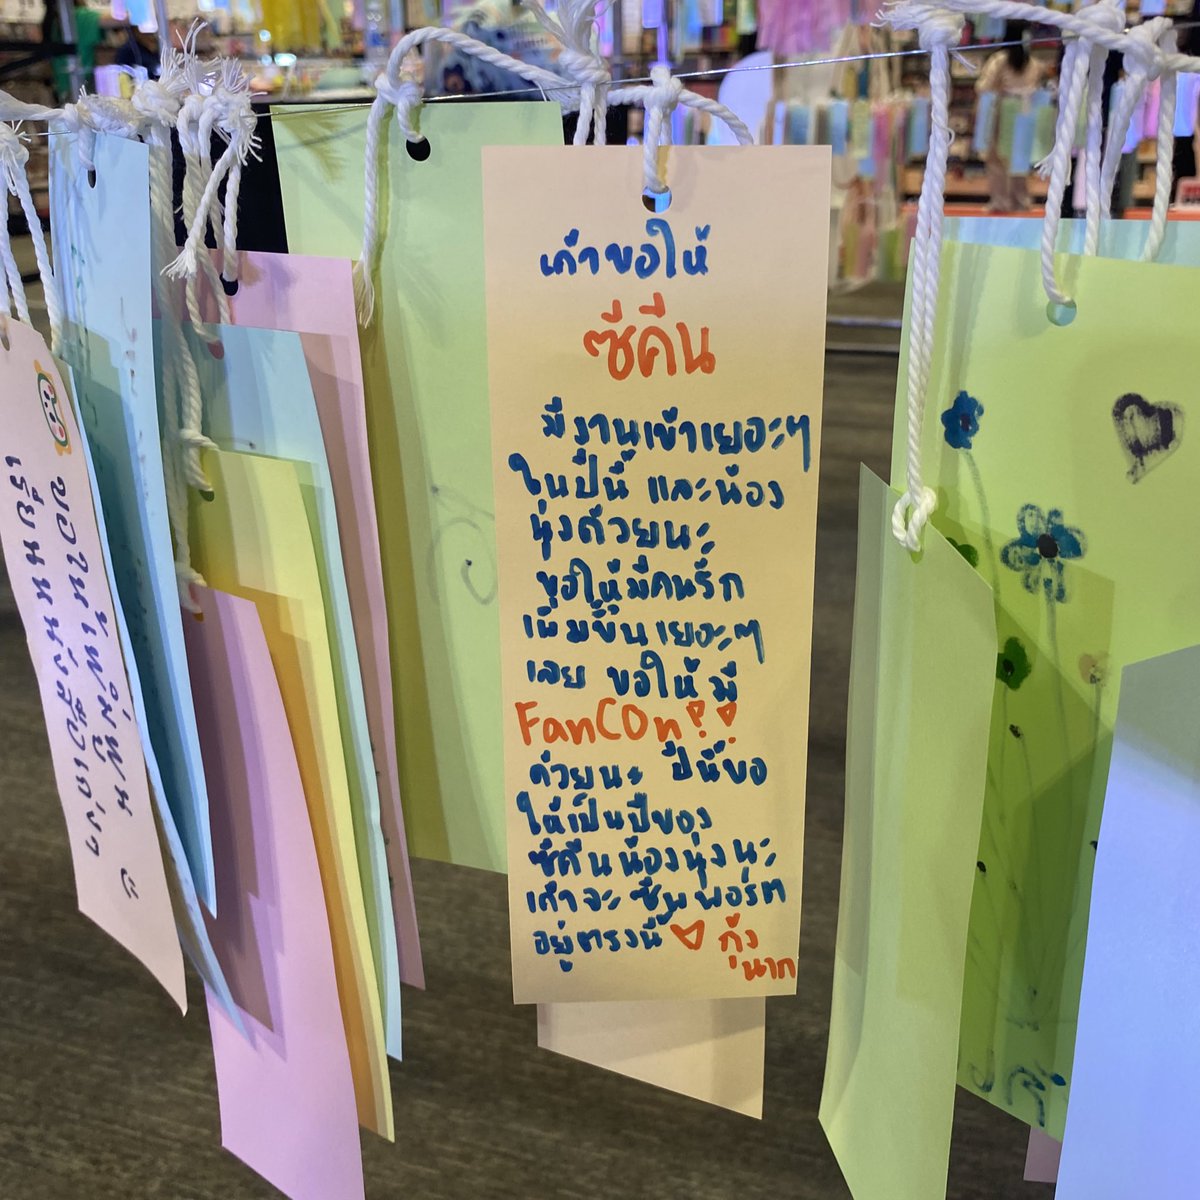 เก๋าขอให้
ซีคีน
มีงานเข้าเยอะๆ
ในปีนี้ และน้อง
หุ่งด้วยนะ
ขอให้มีคนรัก
เพิ่มขึ้นเยอะๆ
เลย ขอให้มี
FanCOn!!
ด้วยนะ ปีนี้ขอ
ให้เป็นปีของ
ซีคีนน้องหุ่งนะ
เก๋าจะซัพพอร์ต
อยู่ตรงนี้
กุ้ง
นาก
ขอให้เพิ่มพูน
เรียนหนังสือเก่งๆ